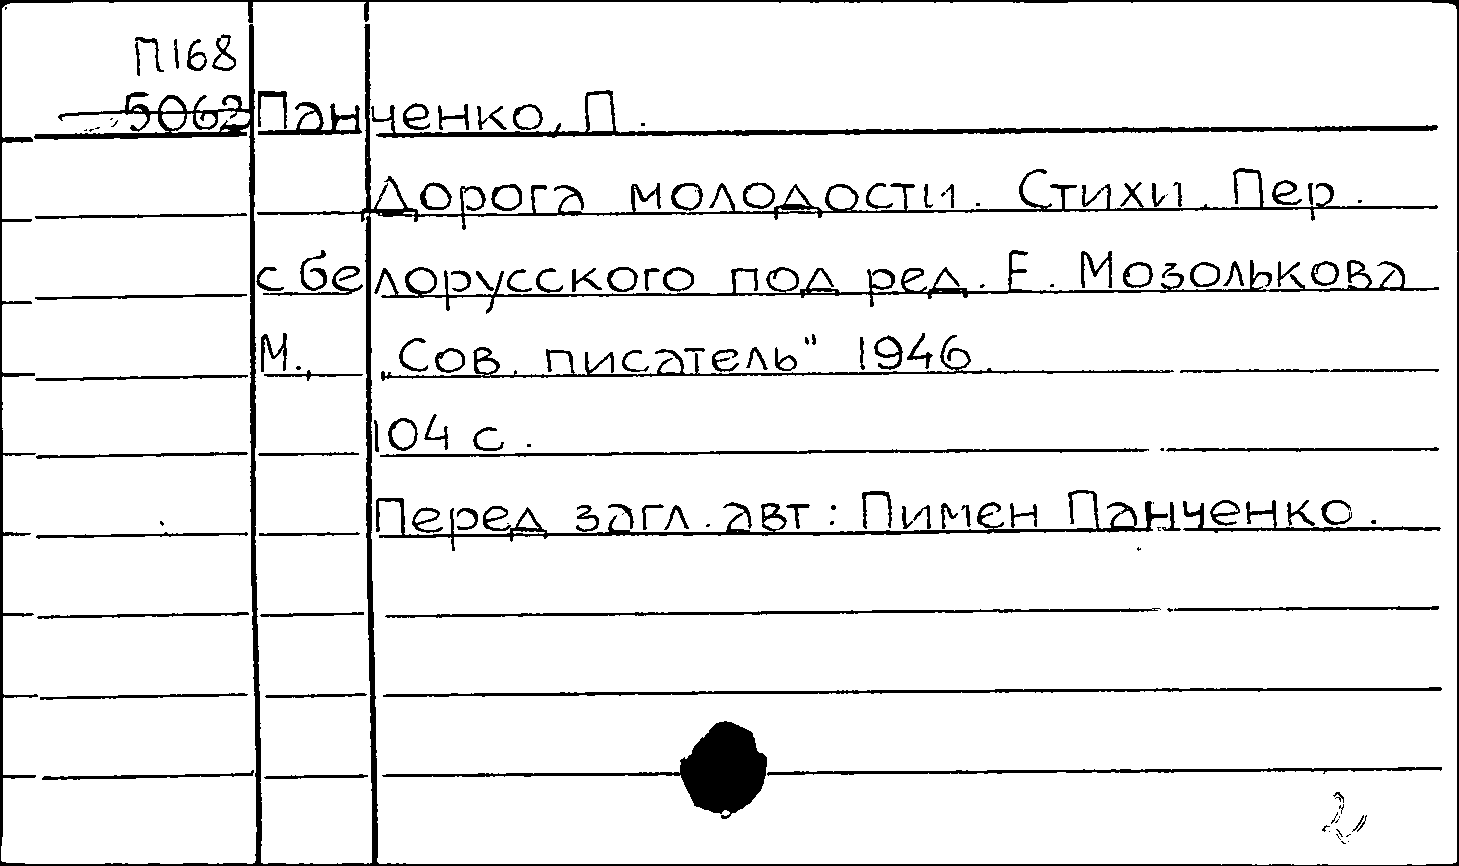 П168
5062 Панченко, П.
Дорога молодости. Стихи. Пер.
с белорусского под ред. Е. Мозолькова
М., „Сов. писатель" 1946.
104 с.
Перед загл. авт: Пимен Панченко.
2